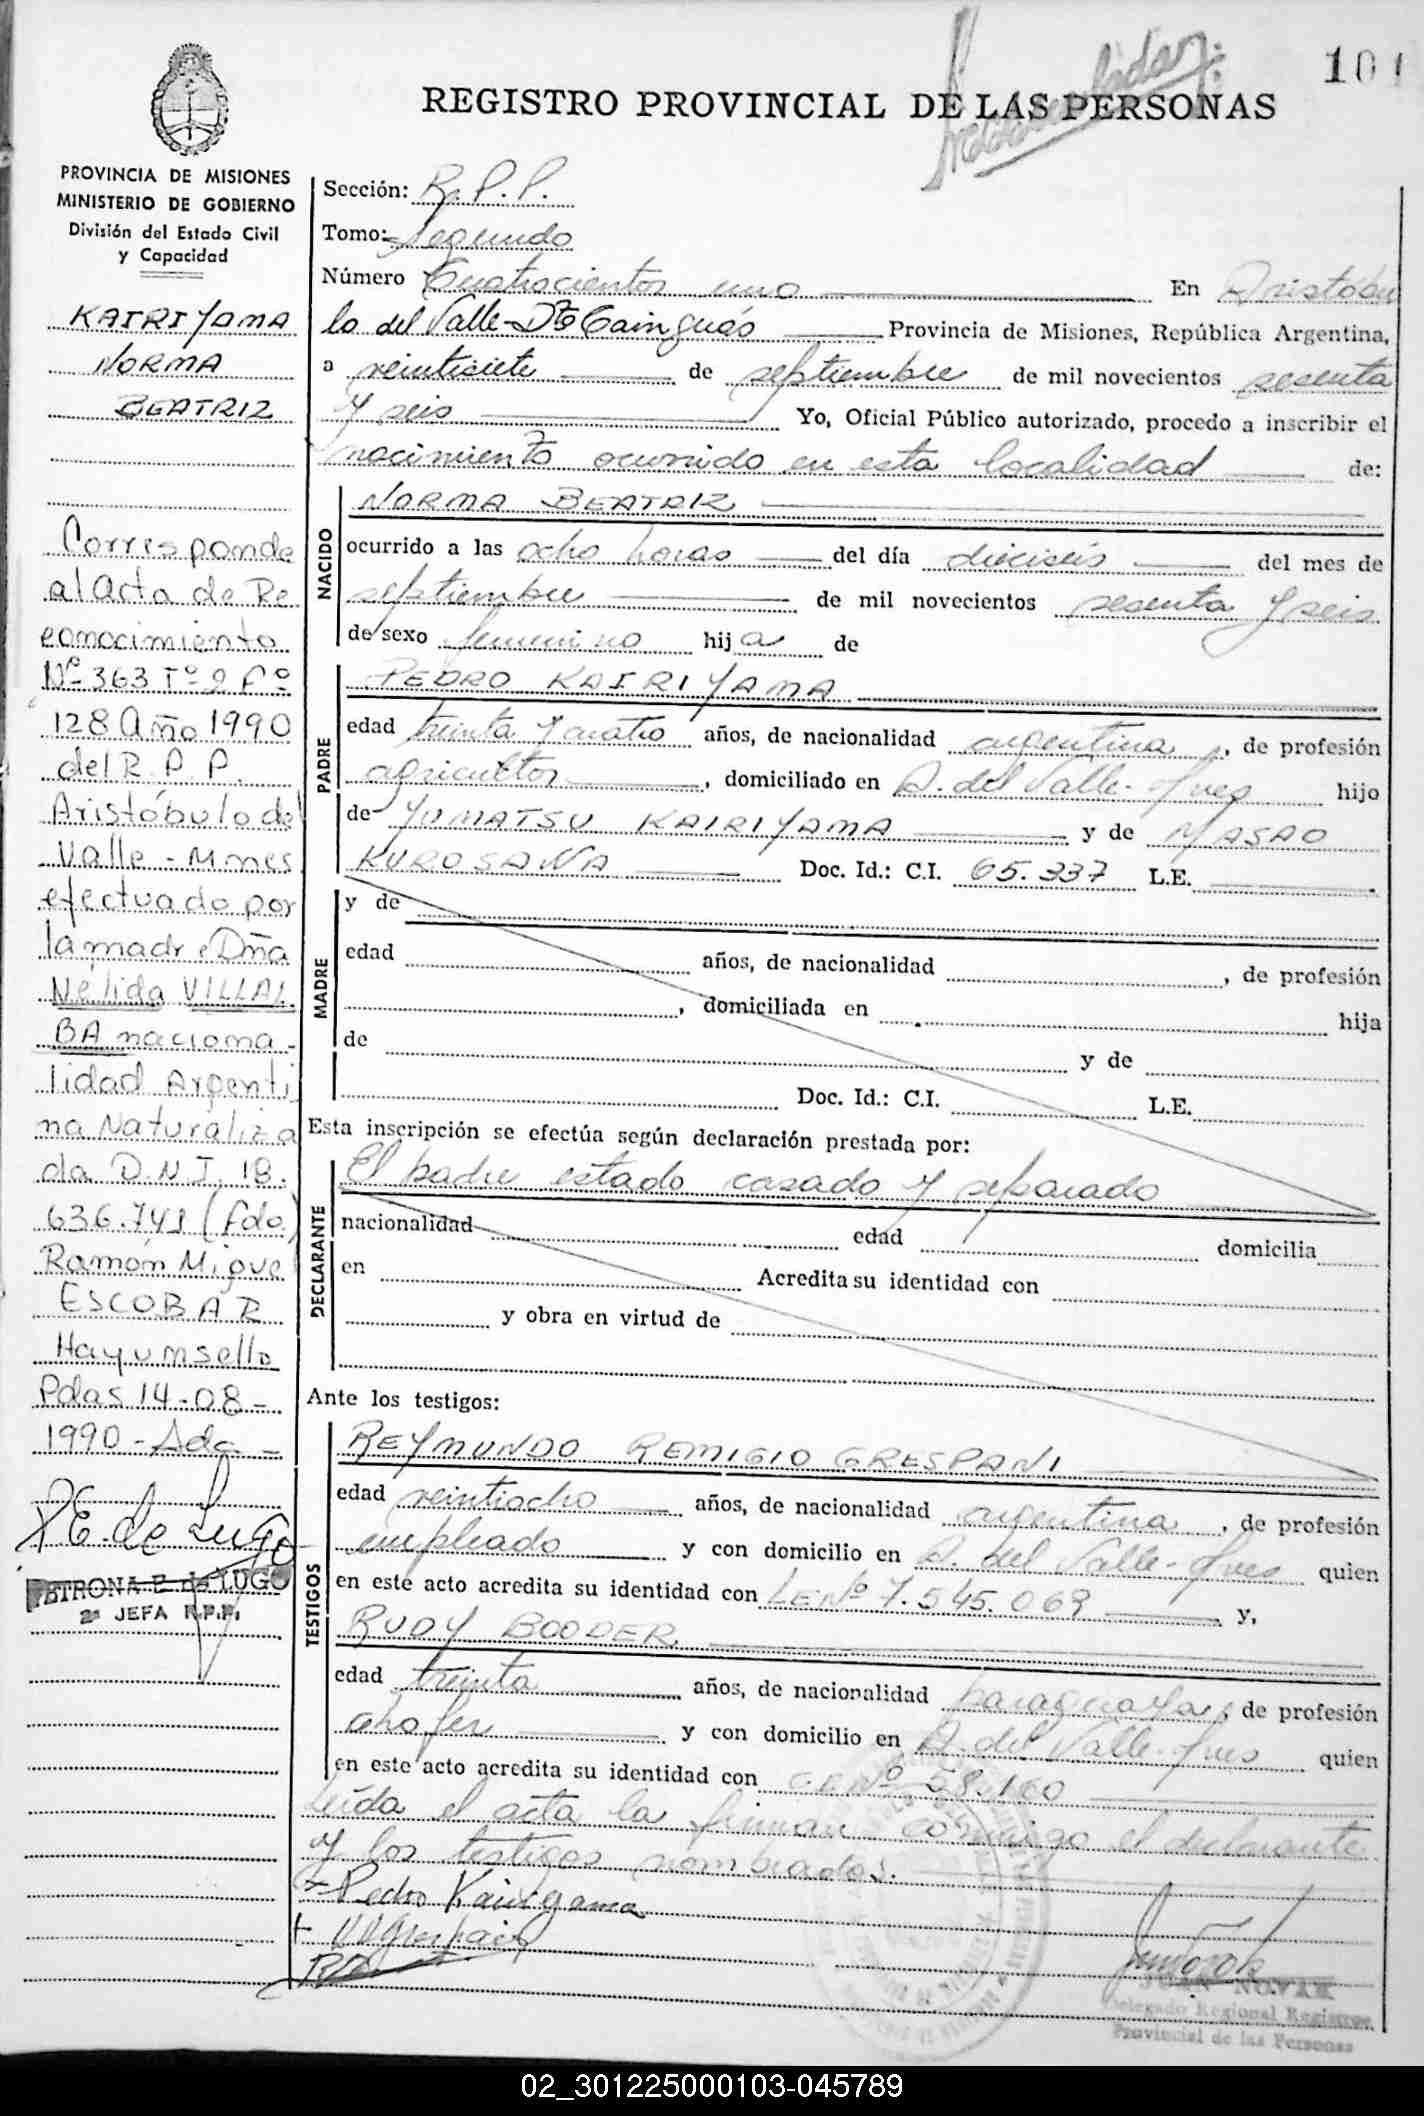 101
REGISTRO PROVINCIAL DE LAS PERSONAS
PROVINCIA DE MISIONES
MINISTERIO DE GOBIERNO
División del Estado Civil
y Capacidad
KAIRIYAMA
NORMA
BEATRIZ
Corresponde
al Acta de Re
conocimiento
Nº 363 Tº 2 Fº
128 Año 1990
del R.P.P.
Aristóbulo del
Valle - Mnes
efectuado por
la madre Dña
Nélida VILLAL
BA naciona-
lidad Argenti
na Naturaliza
da D.N.I. 18.
636.741 (fdo.)
Ramón Migue
ESCOBAR
Hay un sello
Pdas 14-08-
1990-
P.E. de Lugo
PETRONA E. de LUGO
2ª JEFA R.P.P.
Sección: R.P.P.
Tomo: Segundo
Número Cuatrocientos uno En Aristóbu
lo del Valle-Dto Cainguás Provincia de Misiones, República Argentina,
a veintisiete de septiembre de mil novecientos sesenta
y seis Yo, Oficial Público autorizado, procedo a inscribir el
nacimiento ocurrido en esta localidad de:
NACIDO
NORMA BEATRIZ
ocurrido a las ocho horas del día dieciseis del mes de
septiembre de mil novecientos sesenta y seis
de sexo femenino hija de
PADRE
PEDRO KAIRIYAMA
edad treinta y cuatro años, de nacionalidad argentina, de profesión
agricultor, domiciliado en A. del Valle- Mnes hijo
de YUMATSU KAIRIYAMA y de MASAO
KUROSAWA Doc. Id.: C.I. 65.337 L.E.
MADRE
y de
edad años, de nacionalidad , de profesión
, domiciliada en hija
de y de
Doc. Id.: C.I. L.E.
Esta inscripción se efectúa según declaración prestada por:
DECLARANTE
El padre estado casado y separado
nacionalidad edad domicilia
en Acredita su identidad con
y obra en virtud de
Ante los testigos:
TESTIGOS
REYMUNDO REMIGIO GRESPANI
edad veintiocho años, de nacionalidad argentina, de profesión
empleado y con domicilio en A. del Valle- Mnes quien
en este acto acredita su identidad con LE Nº 7.545.069 y,
RUDY BOODER
edad treinta años, de nacionalidad paraguaya, de profesión
chofer y con domicilio en A. del Valle- Mnes quien
en este acto acredita su identidad con C.E Nº 58.100
Leída el acta la firman conmigo el declarante
y los testigos nombrados.
Pedro Kairiyama
JUAN NOVAK
Delegado Regional Registro
Provincial de las Personas
02_301225000103-045789